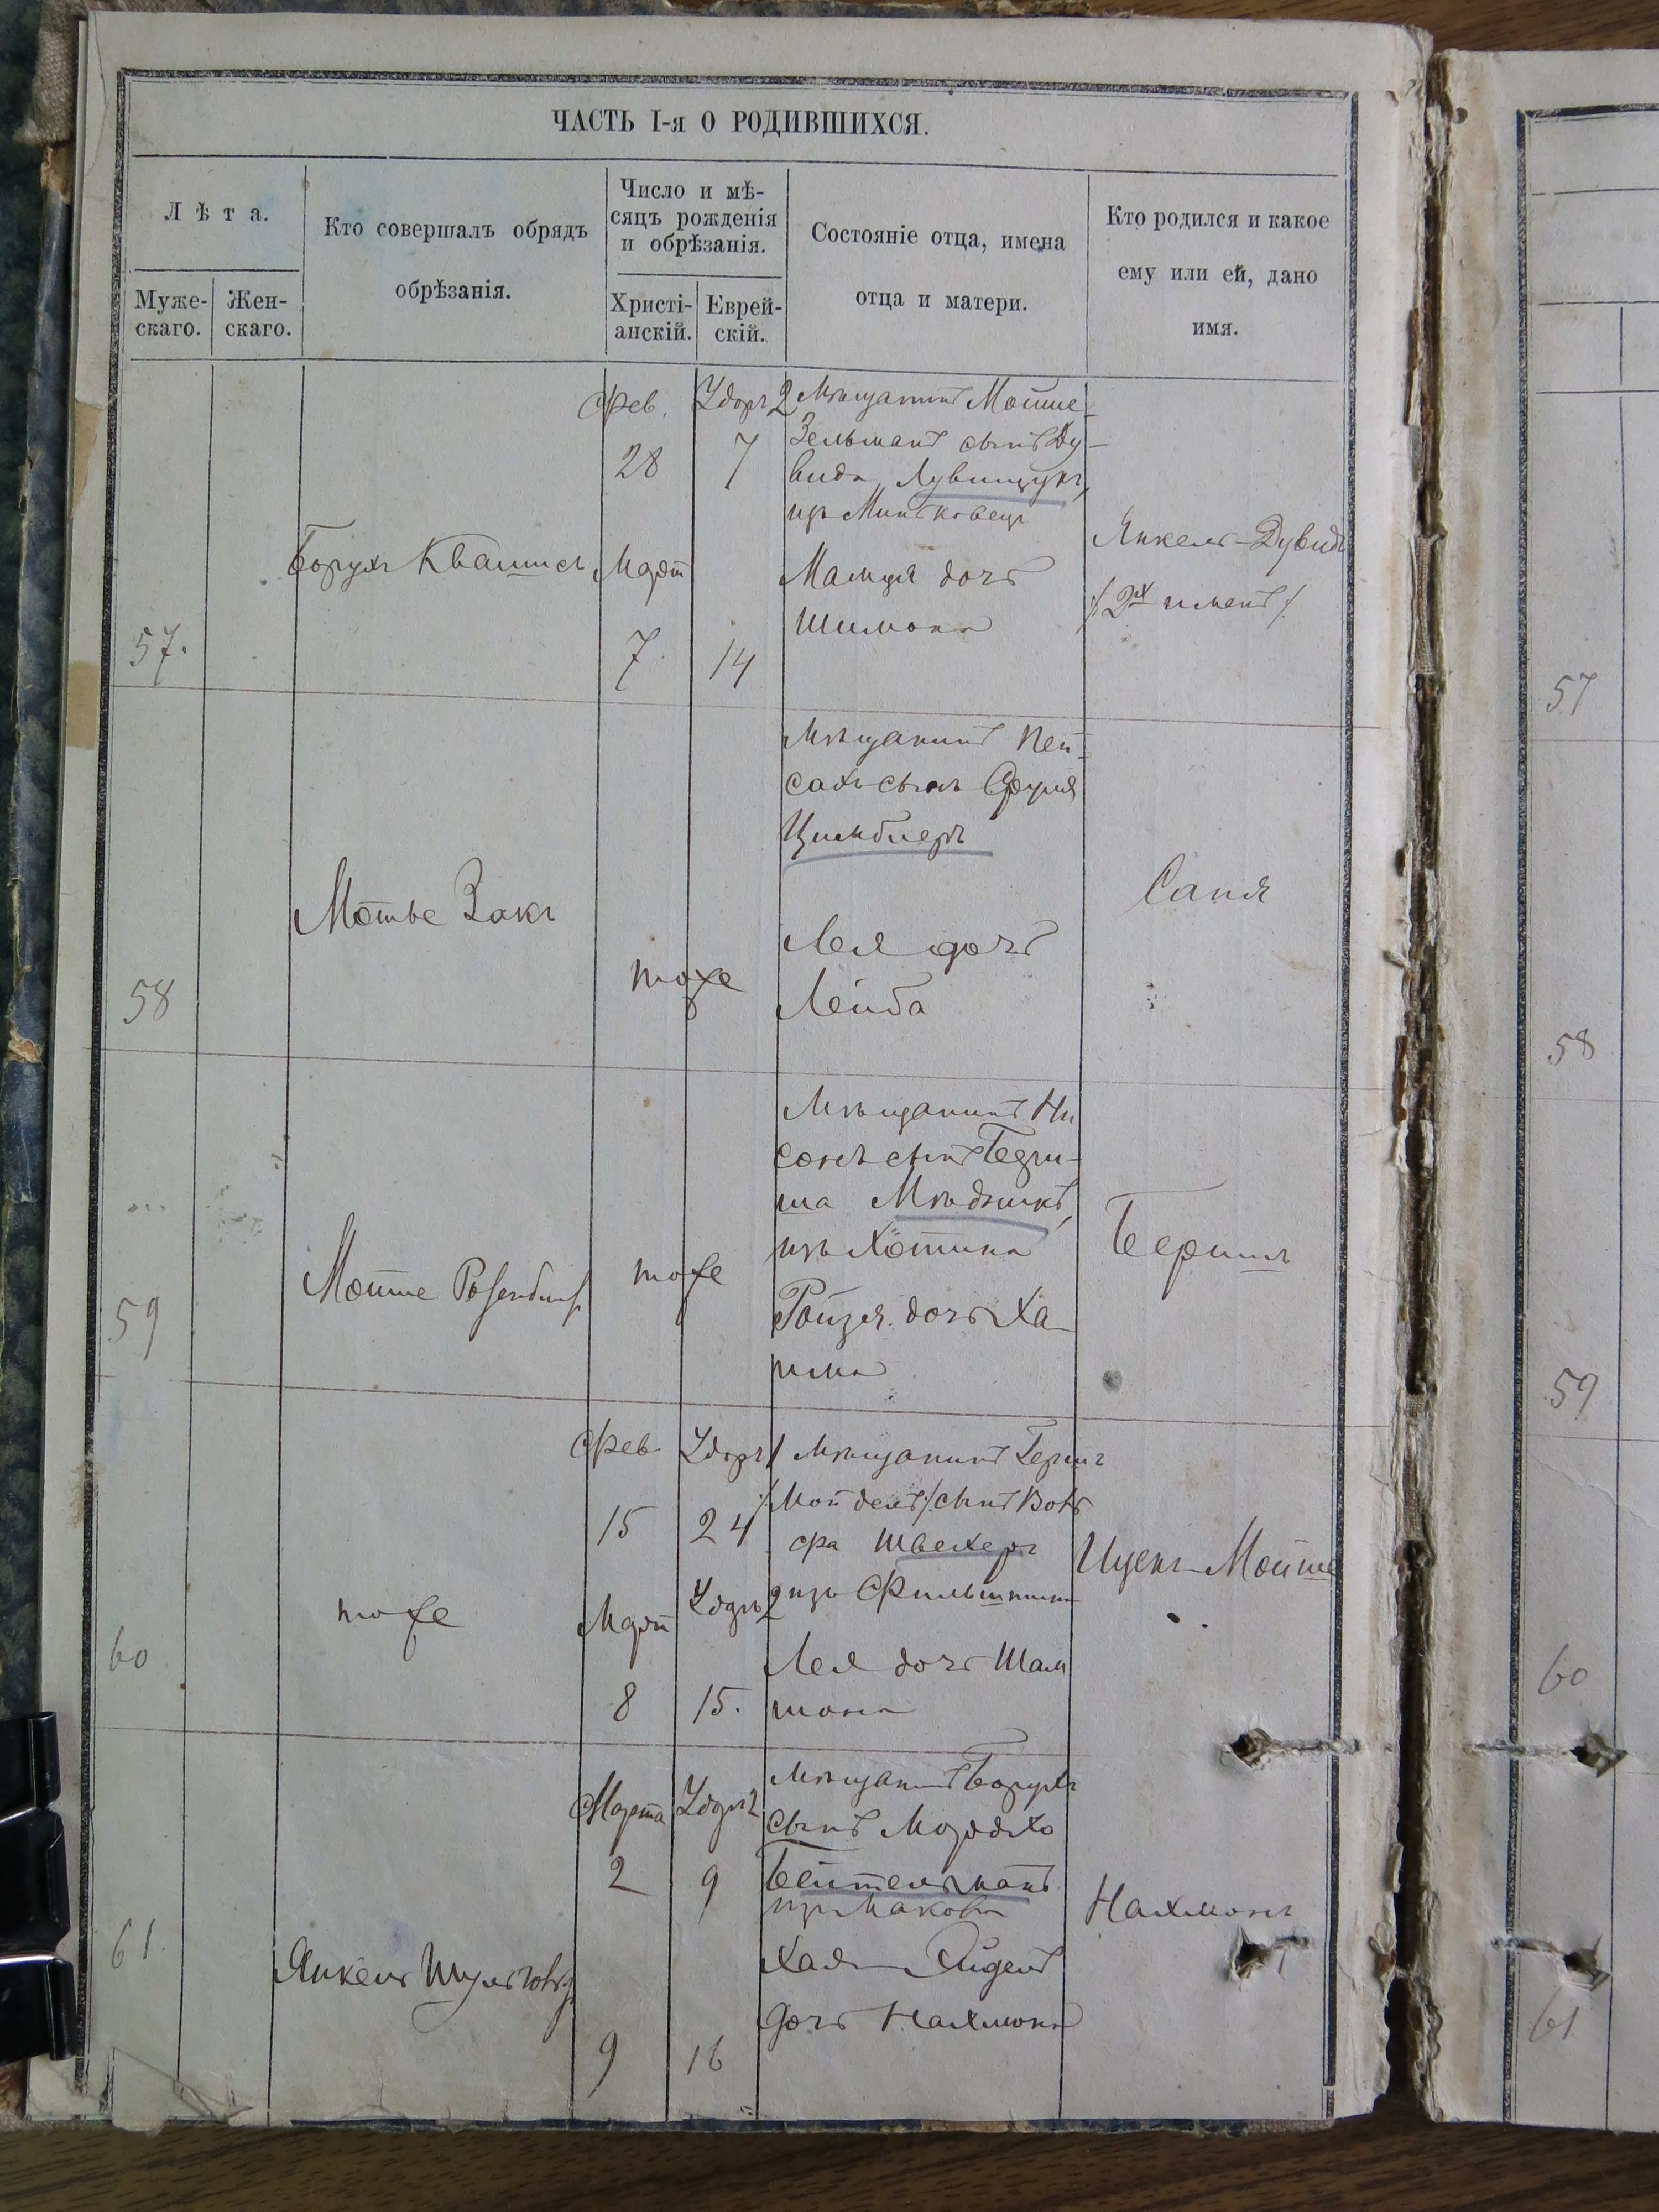 ЧАСТЬ I-я О РОДИВШИХСЯ.
Лѣта.
Муже-
скаго.
Жен-
скаго.
Кто совершалъ обрядъ
обрѣзанія.
Число и мѣ-
сяцъ рожденія
и обрѣзанія.
Христі-
анскій.
Еврей-
скій.
Состояніе отца, имена
отца и матери.
Кто родился и какое
ему или ей, дано
имя.
57.
Борухъ Квашисъ
Фев.
28
Март
7
Удоръ 2
7
14
Мѣщанинъ Мойше-
Зельманъ сынъ Ду-
вида
изъ Миньковецъ
Маня дочь
Шимона
Янкель-Дувидъ
/2хъ именъ/
58
Мотье Закъ
тоже
Мѣщанинъ Пей-
сахъ сынъ
Цильбиеръ
Лея дочь
Лейба
Саня
59
Мойше
тоже
Мѣщанинъ Ни
сонъ сынъ Берн-
ша Мѣдникъ,
изъ Хотина
Ройзя дочь Ха-
има
Бершъ
60
тоже
Фев
15
Март
8
Удоръ 1
24
Удоръ 2
15.
Мѣщанинъ Гершъ
/Мойдель/ сынъ Воль
фа Швехеръ
изъ
Лея дочь Шам
шона
Ицекъ-Мойше
61.
Янкель
Марта
2
9
Удоръ 2
9
16
Мѣщанинъ Борухъ
сынъ Мордхо
Бейтельманъ
изъ Макова
Хая-Эйдель
дочь Нахмона
Нахмонъ
57
58
59
60
61